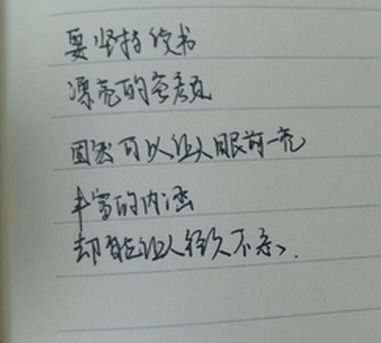 要坚持读书
漂亮的容颜
固然可以让人眼前一亮
丰富的内涵
却能让人经久不忘、